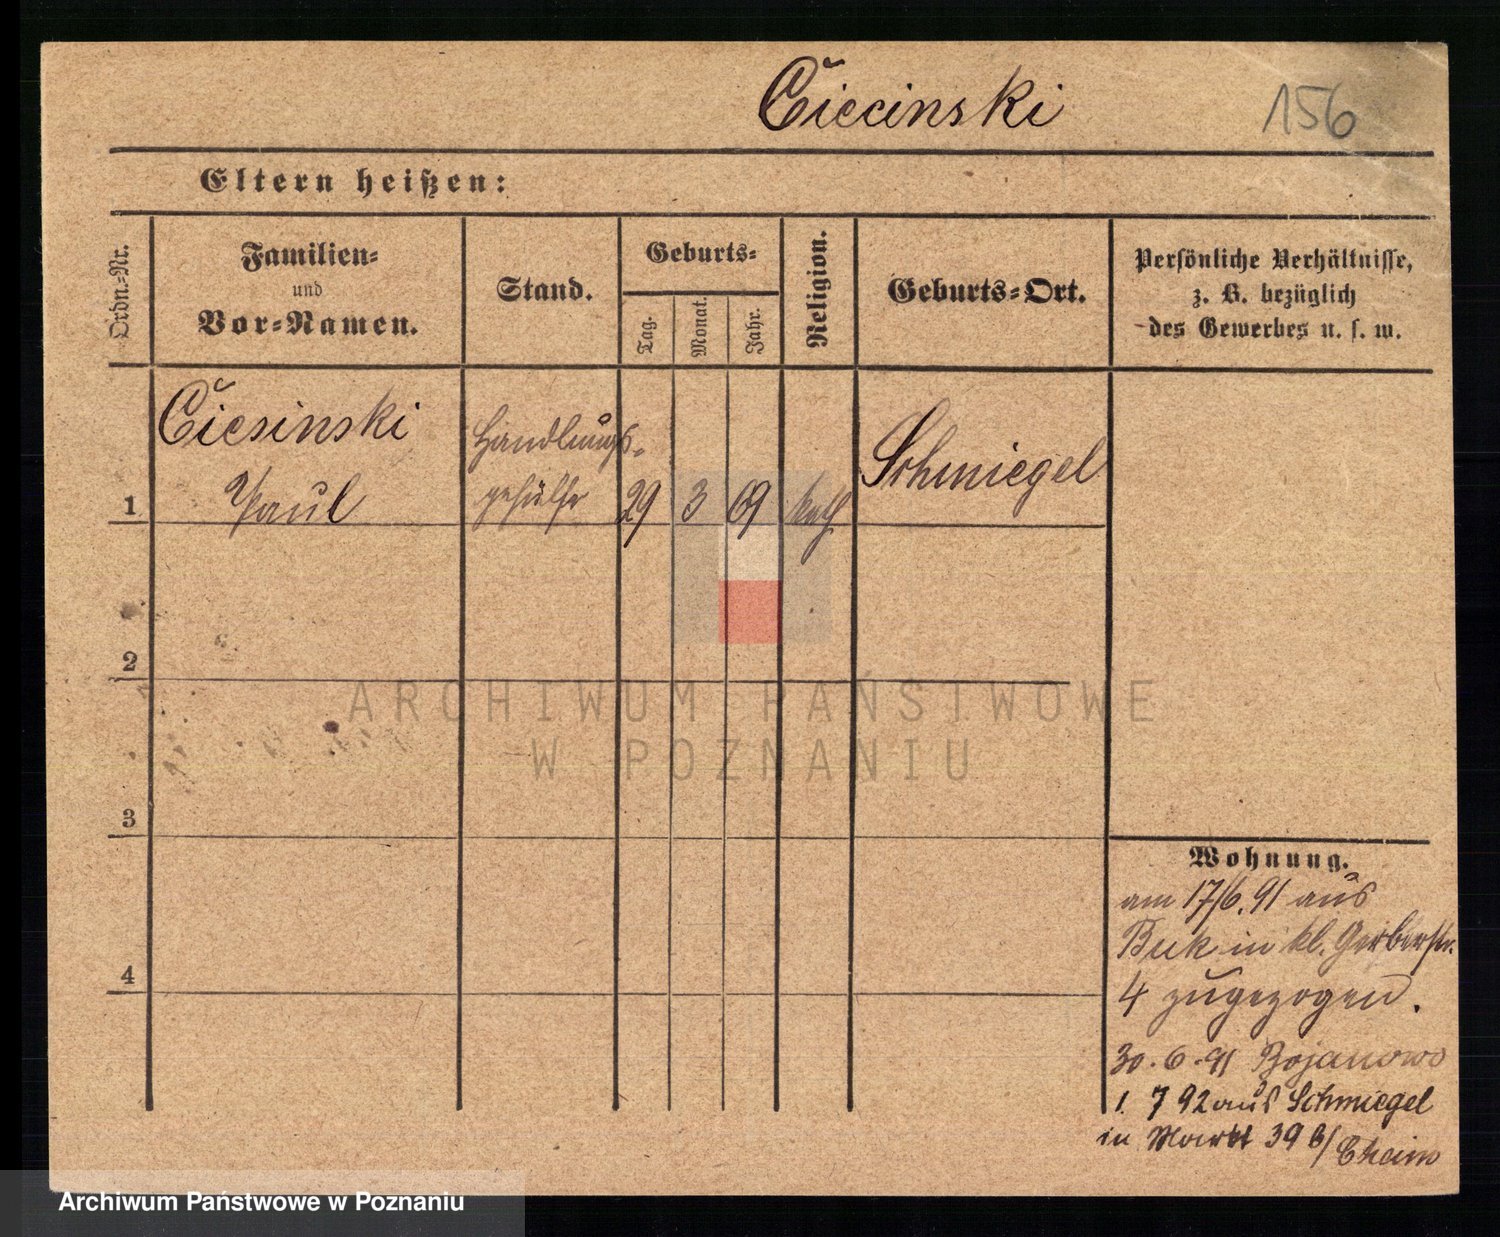 Ciecinski
156
Eltern heißen:
Ordn.-Nr.
Familien-
und
Vor-Namen.
Stand.
Geburts-
Tag.
Monat.
Jahr.
Religion.
Geburts-Ort.
Persönliche Verhältnisse,
z. B. bezüglich
des Gewerbes u. s. w.
1
Ciesinski
Paul
Handlungs-
gehülfe
29
3
69
kath
Schmiegel
2
3
4
Wohnung.
am 17/6.91 aus
Buk in kl. Gerberstr.
4 zugezogen.
30.6.91 Bojanowo
1. 7 92 aus Schmiegel
in Markt 39 b/
ARCHIWUM PAŃSTWOWE
W POZNANIU
Archiwum Państwowe w Poznaniu